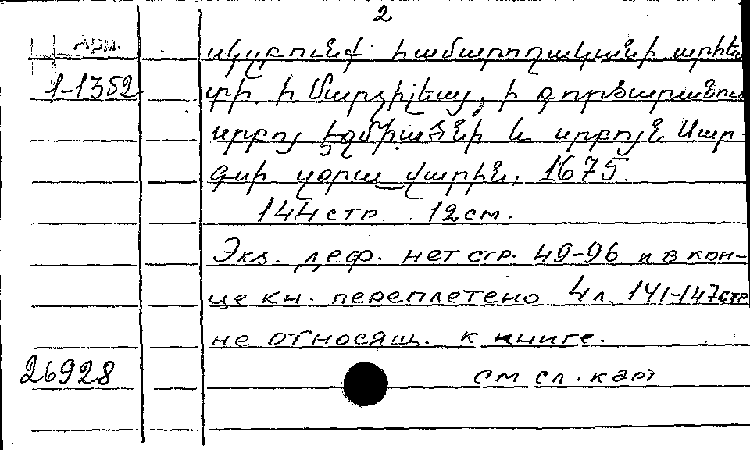 2
Арм.
սկզբունք համարողական ի արհես
1-1352
տի. ի Մարսիլիայ, ի գործարանում
սրբոյ Էջմիածնի և սրբոյն Սար
գսի զօրավարին. 1675
144 стр. 12 см.
Экз. деф. нет стр. 49-96 и в кон-
це кн. переплетено 4 л. 141-147 стр
не относящ. к книге.
26928
см сл. карт